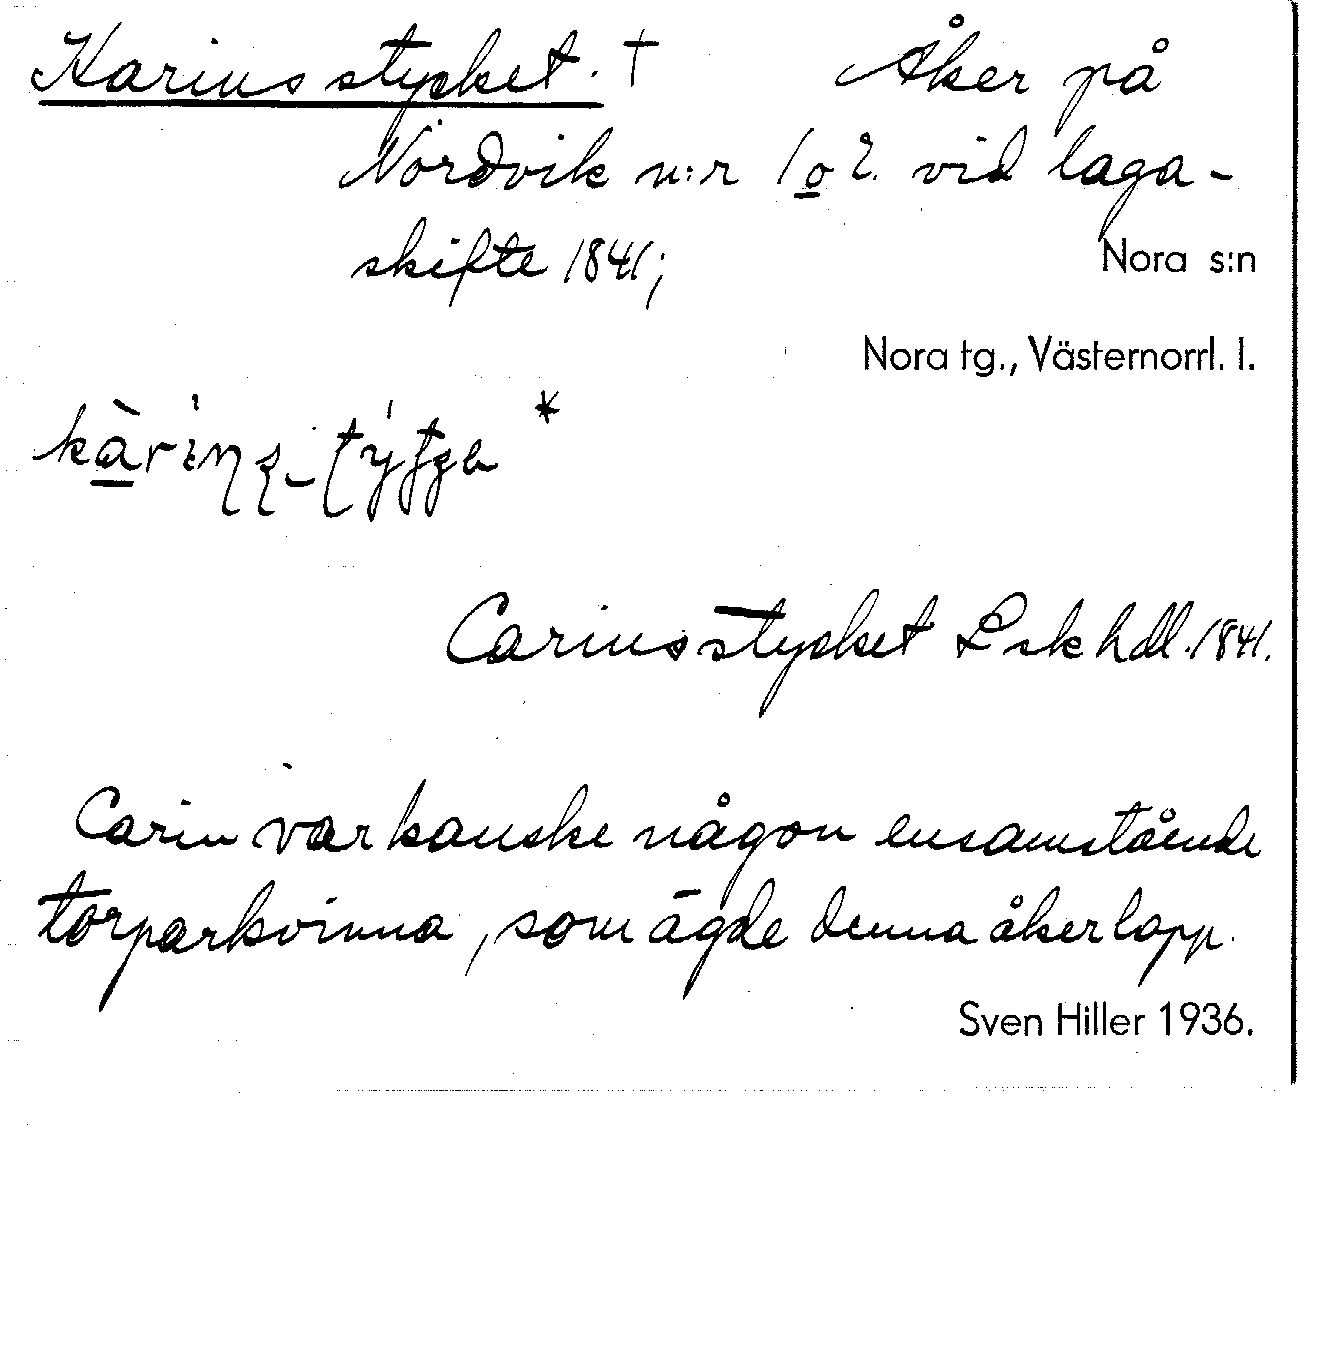 Karinsstycket. † Åker på
Nordvik n:r 1 o 2. vid laga-
skifte 1841;
Nora s:n
Nora tg., Västernorrl. l.
Carinsstycket Lskhdl. 1841.
Carin var kanske någon ensamstående
torparkvinna, som ägde denna åkerlapp.
Sven Hiller 1936.